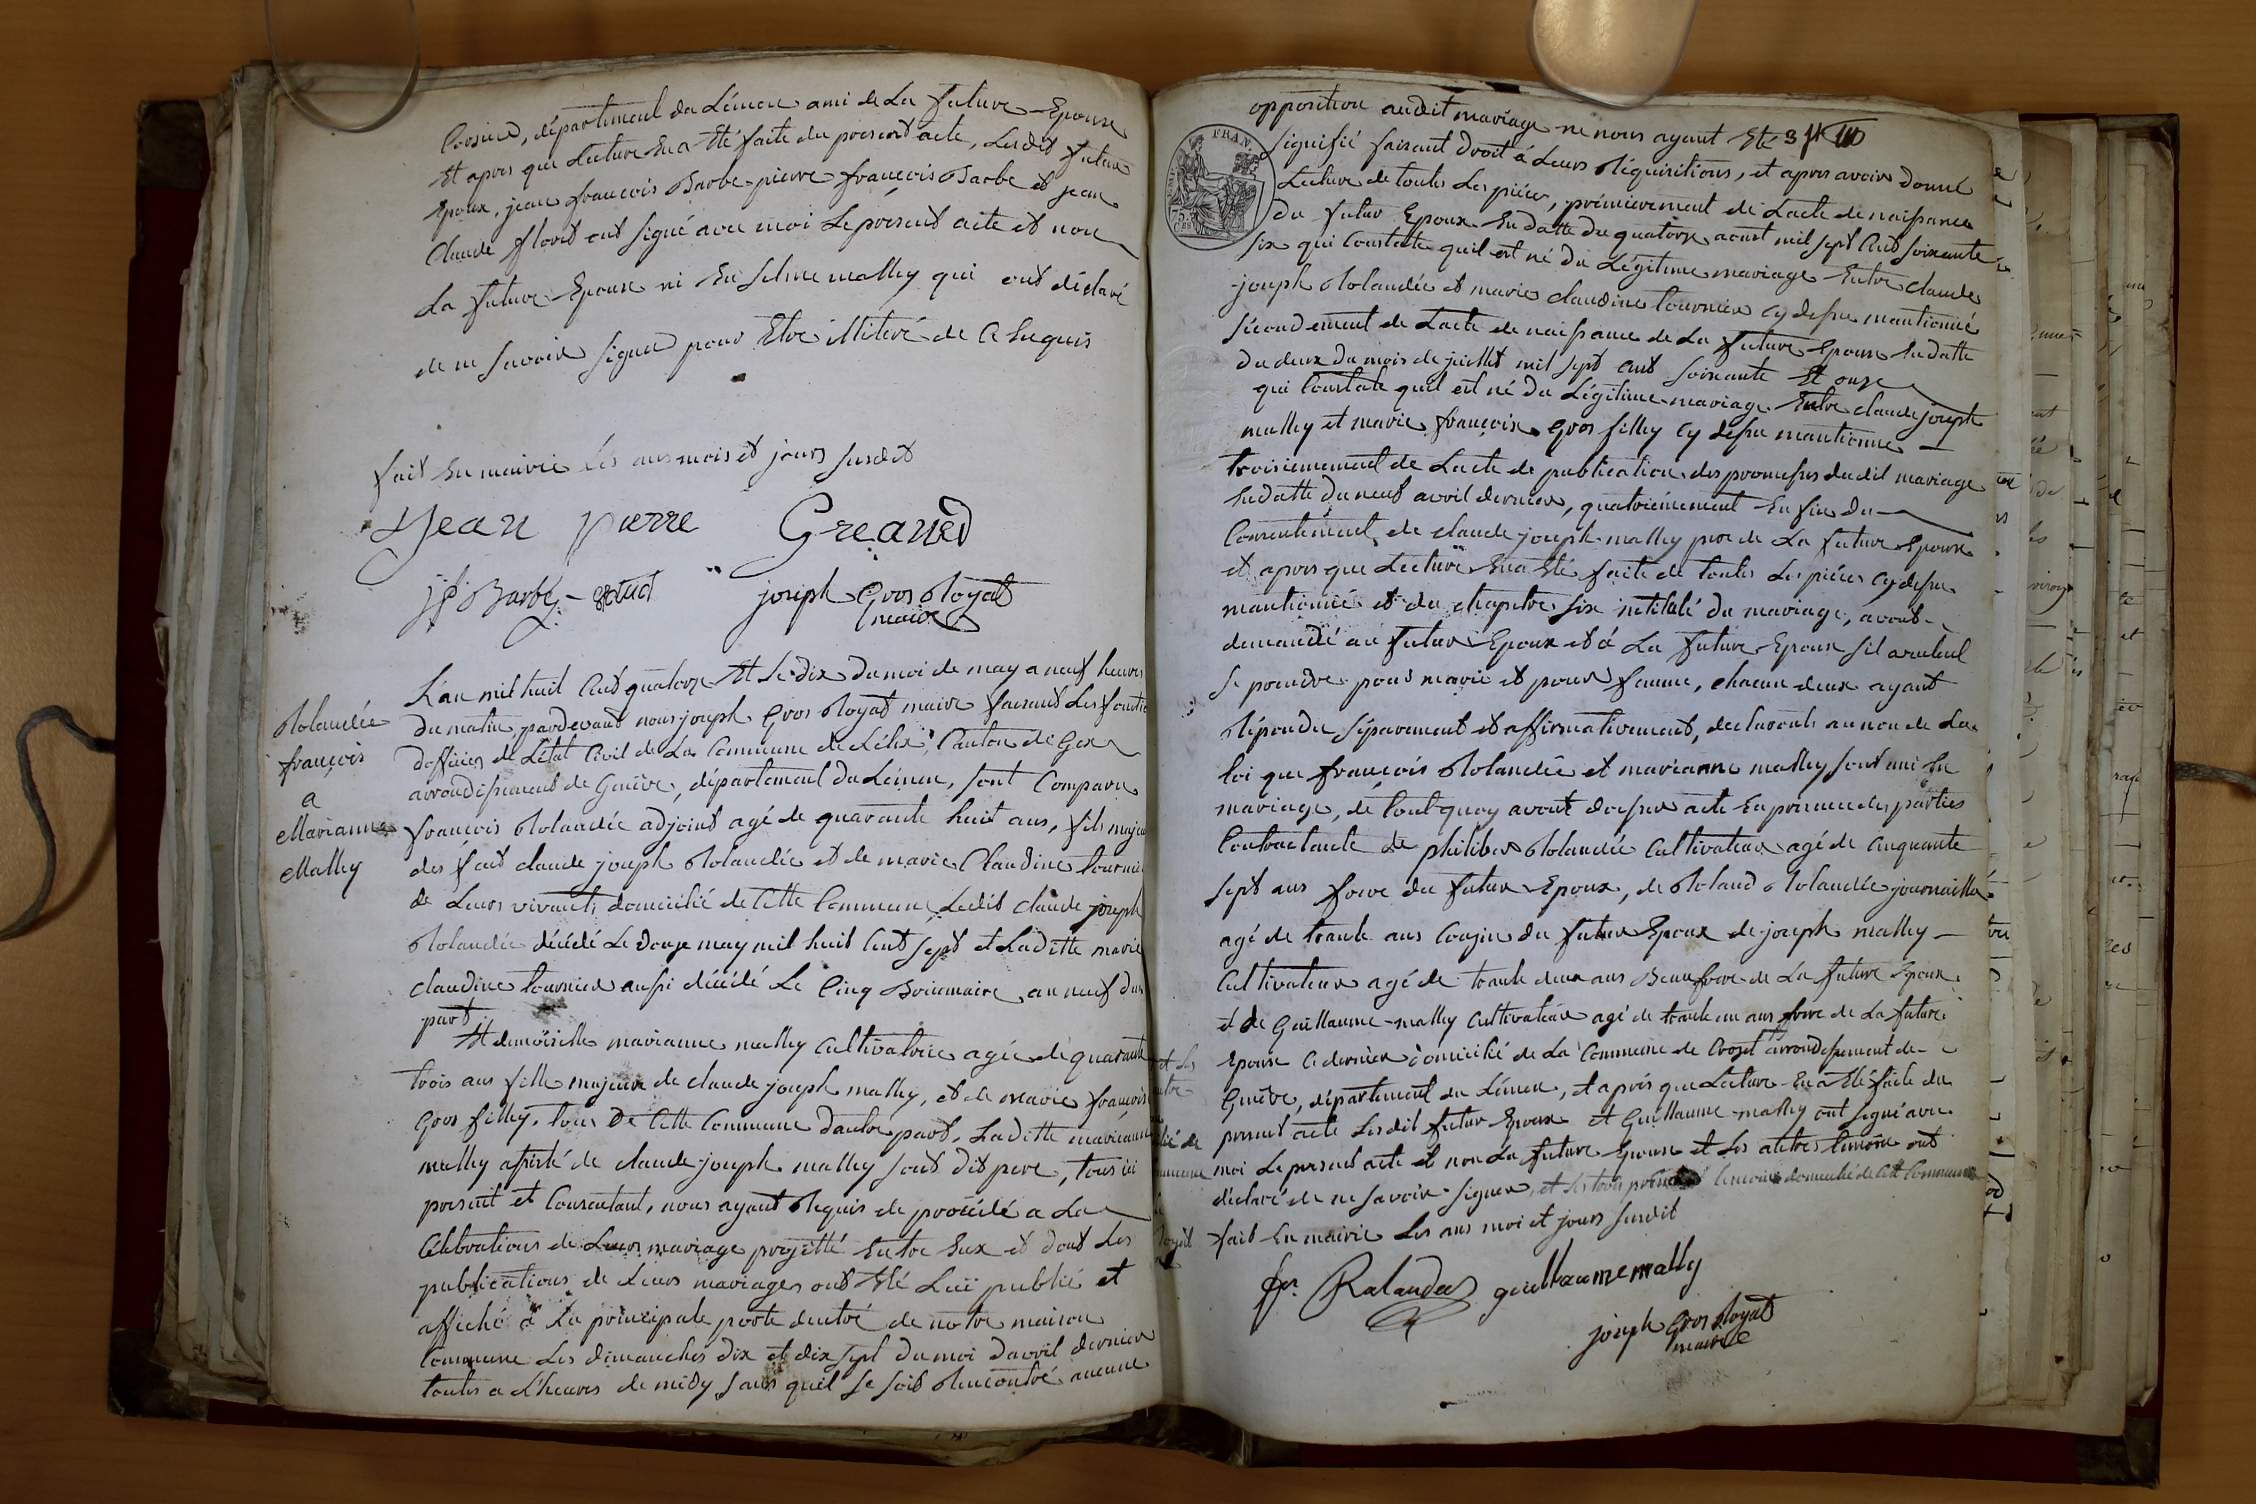 département du Léman ami de La future Epouse
Et apres que Lecture En a Eté faite du present acte, Lesdit futur
Epoux, jean françois Barbe pierre françois Barbe et jean
Claude floret ont signé avec moi Le present acte et non
La future Epouse ni Enselme malley qui ont déclaré
de ne savoir signer pour Etre illiteré de ce Enquis
fait En mairie les ans mois et jours susdit
Jean pierre Greaned
Barbe
joseph Gros Royat
maire
Rolandée
françois
a
Marianne
Malley
L'an mil huit Cent quatorze Et Le dix du moi de may a neuf heures
du matin, pardevant nous joseph Gros Royat maire faisant Les fonctio
d'officier de L'état Civil de La Commune de Lélex, Canton de Gex
arrondissement de Genève, département du Léman, sont Comparu
françois Rolandée adjoint agé de quarante huit ans, fils majeur
des fait claude joseph Rolandée et de marie Claudine tournier
de Leurs vivants domicilié de Cette Commune, Ledit claude joseph
Rolandée décédé Le douze may mil huit Cent sept et Laditte marie
claudine tournier aussi décédé Le Cinq Brumaire an neuf dun
part
Et demoiselle marianne malley Cultivatrice agée de quarante
trois ans fille majeure de claude joseph malley, et de marie françoise
Gros filley, tous De Cette Commune d'autre part, Laditte marianne
malley assisté de claude joseph malley sont dit pere, tous ici
present et Consentant, nous ayant Requis de procédé a La
Célébrations de Leurs mariage projetté Entre Eux et dont Les
publications de Leurs mariages ont Eté Luë publié et
affiché à La principale porte dentré de notre maison
Commune Les dimanches dix et dix sept du moi davril dernier
toutes a L'heures de midy, sans quil se soit Rencontré aucune
opposition audit mariage ne nous ayant Eté
signifié faisant droit à Leurs Réquisitions, et apres avoir donné
Lecture de toutes Les pièces, premièrement de L'acte de naissance
du futur Epoux En datte du quatorze aoust mil sept Cent soixante
six qui Constate quil est né du Légitime mariage Entre claude
joseph Rolandée et marie claudine tournier cy dessu mantionné
sécondement de L'acte de naissance de La future Epouse En datte
du deux du mois de juillet mil sept Cent soixante Et onze
qui Constate quil est né du Légitime mariage Entre claude joseph
malley et marie françoise Gros filley cy dessu mantionne
troisiemement de L'acte de publication des promesses dudit mariage
En datte du neuf avril dernier, quatrièmement Enfin du
Consentement de claude joseph malley pere de La future Epouse
et apres que Lecture En a Eté faite de toutes Les pièces cy dessu
mantionné et du chapitre six intitulé du mariage, avont
demandé au futur Epoux et à La future Epouse sil veulent
se prendre pour mari et pour femme, chacun deux ayant
Répondu séparement et affirmativement, declarons au nom de La
loi que françois Rolandée et marianne malley sont uni En
mariage, de tout quoy avont dressé acte En presence des parties
Contractante de philiber Rolandée Cultivateur agé de Cinquante
sept ans frere du futur Epoux, de Roland Rolandée journaillé
agé de trante ans Cousin du futur Epoux de joseph malley
Cultivateur agé de trante deux ans Beaufrere de La future Epouse
et de Guillaume malley Cultivateur agé de trante un ans frere de La future
Epouse Ce dernier domicilié de La Commune de Crozet arrondissement de
Genève, département du Léman, et après que Lecture En a Eté faite du
present acte Lesdit futur Epoux et Guillaume malley ont signé avec
moi Le present acte et non La future Epouse et Les autres temoins ont
déclaré de ne savoir signer, et Les trois premié temoins domicilié de Cette Commune
fait En mairie Les ans moi et jours susdit
fr. Ralandez
guillaume mally
joseph Gros Royat
maire